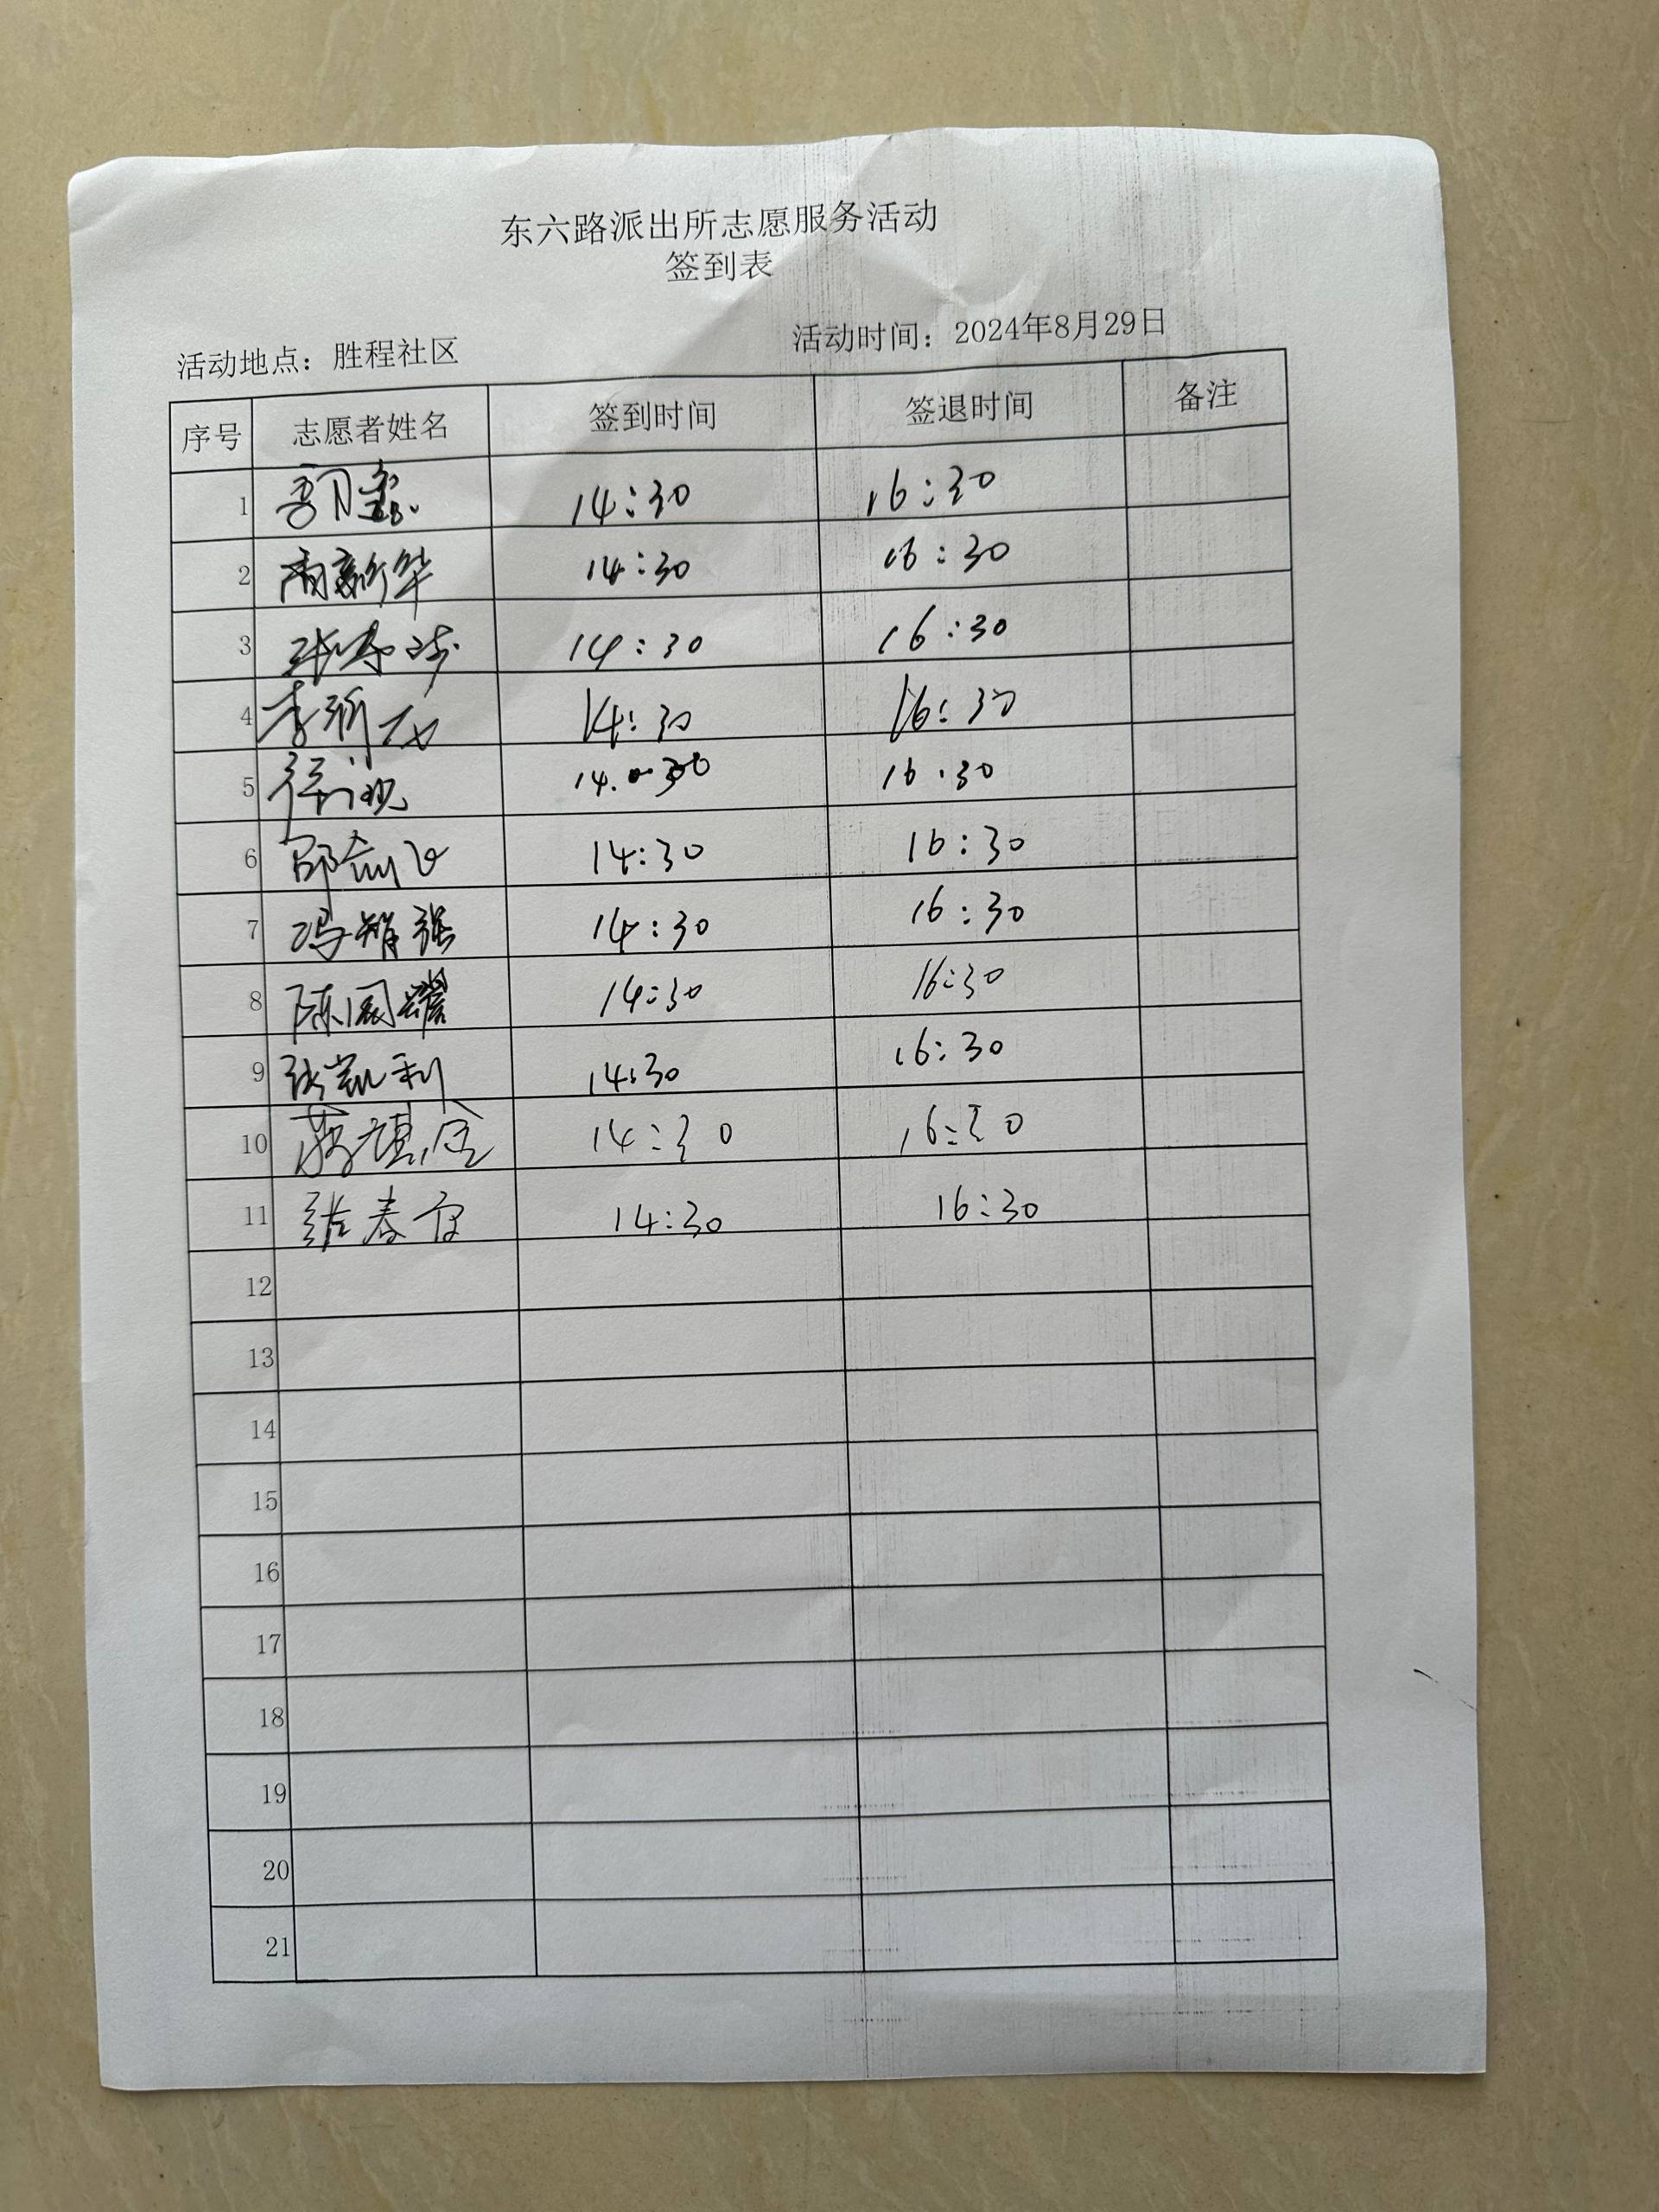 东六路派出所志愿服务活动
签到表
活动地点：胜程社区 活动时间：2024年8月29日
序号 志愿者姓名 签到时间 签退时间 备注
1 14:30 16:30
2 14:30 16:30
3 14:30 16:30
4 14:30 16:30
5 14:30 16:30
6 14:30 16:30
7 冯维强 14:30 16:30
8 14:30 16:30
9 张凯利 14:30 16:30
10 14:30 16:30
11 14:30 16:30
12
13
14
15
16
17
18
19
20
21